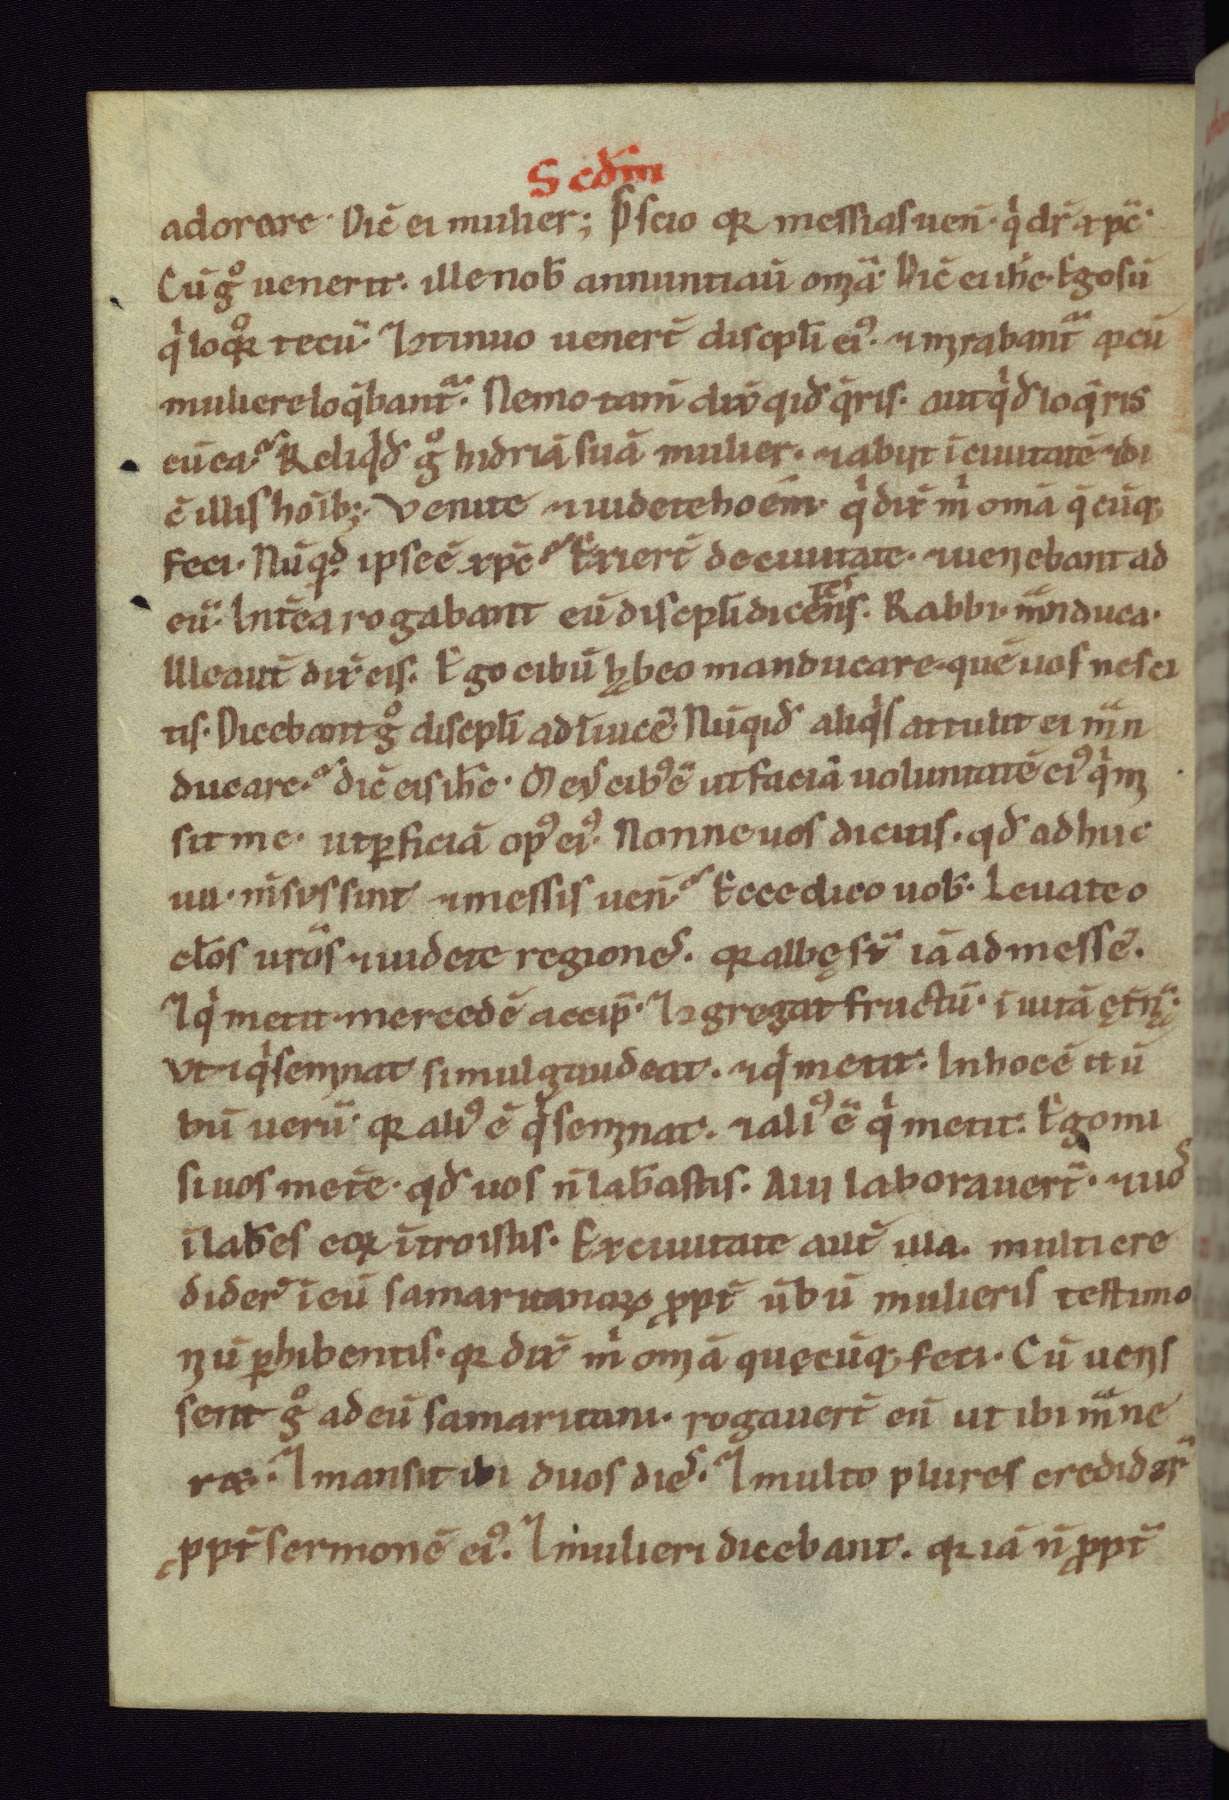 Scdm̄
adorare· Dic̄ ei mulier; Scio qꝛ messias uen̄· q̇ dr̄ xp̄c·
Cū gͦ uenerit· ille nob̄ annuntiaū om̄ia· Dic̄ ei ih̄c· Ego sū
q̇ loqꝛ tecū· ⁊ ꝯtinuo uenerт̄ discpl̄i ei⁹· ⁊ mirabant᷑ qꝛ cū
muliere loq̄bant᷑· Nemo tam̄ dix̄ qid q̄ris· aut q̇d loq̄ris
cū ea· Reliq̇d gͦ hidriā suā mulier· ⁊ abiit ī ciuitatē ⁊ di
c̄ illis hoīb;· Venite ⁊ uidete hoēm· q̇ dix̄ ṁ om̄a q̄cūq;
feci· Nūqd ipse ē xp̄c Exierт̄ de ciuitate· ⁊ uenebant ad
eū· Int̄ea rogabant eū discpl̄i dicentes· Rabbi· manduca·
Ille aut̄ dix̄ eis· Ego cibū habeo manducare quē uos nesci
tis· Dicebant gͦ discpl̄i ad īuicē Nūqid aliq̇s attulit ei man
ducare· dic̄ eis ih̄c· Meus cib⁹ ē ut faciā uoluntatē ei⁹ q̇ mi
sit me· ut ꝑficiā op⁹ ei⁹· Nonne uos dicitis· qd adhuc
iiii· m̄ses sunt ⁊ messis uen̄ Ecce dico uob̄· Leuate o
cl̄os ur̄os ⁊ uidete regiones· qꝛ albę sū iā ad messē·
⁊ q̇ metit mercedē accip̄· ⁊ ꝯgregat fructū· ī uitā ęt̄nā·
Vt ⁊ q̇ seminat simul gaudeat· ⁊ q̇ metit· In hoc ē ū
bū uerū· qꝛ ali⁹ ē q̇ seminat· ⁊ ali⁹ ē q̇ metit· Ego mi
si uos met̄e· qd uos n̄ lab̄astis· Alii laborauert̄· ⁊ uos
ī lab̄es eoꝝ ītroistis· Ex ciuitate aut̄ illa· multi cre
dider̄ ī eū samaritanoꝝ ꝓpt̄ ūbū mulieris testimo
niū ꝑhibentis· qꝛ dix̄ ṁ om̄ia quęcūq; feci· Cū uenis
sent gͦ ad eū samaritani· rogauert̄ eū ut ibi mane
ræ· ⁊ mansit ibi duos dies· ⁊ multo plures credider̄
ꝓpt̄ sermonē ei⁹· ⁊ mulieri dicebant· qꝛ iā n̄ ꝓpt̄